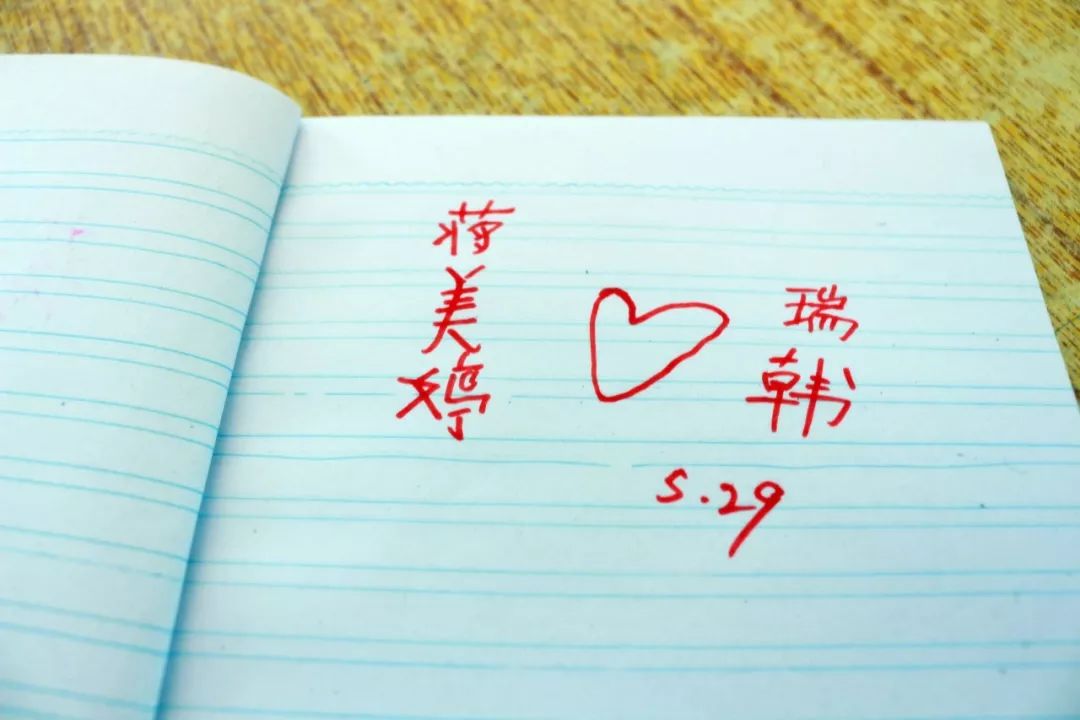 蒋美婷
瑞韩
5.29